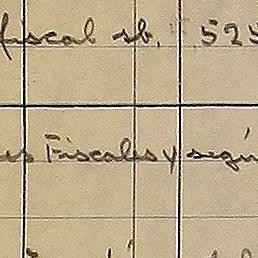 fiscal sb. 525
es Fiscales y segú